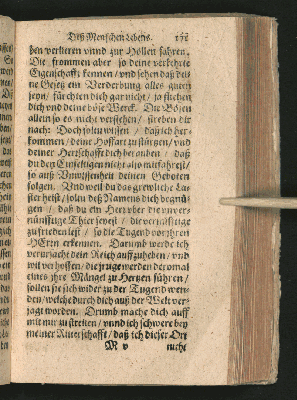 Deß Menschen Lebens.
ben verlieren vnnd zur Hellen fahren.
Die frommen aber so deine verkehrte
Eigenschafft kennen / vnd sehen daß dei-
ne Gesetz ein Verderbung alles guten
seyn / fürchten dich gar nicht / so fliehen
dich vnd deine böse Werck. Die Bösen
allein so es nicht verstehen / streben dir
nach: Doch solen wissen / daß ich her-
kommen / deine Hoffart zu stürtzen / vnd
deiner Herrschafft dich berauben / daß
du den Einfeltigen nicht also mitfahrest /
so auß Vnwissenheit deinen Geboten
folgen. Vnd weil du das grewliche La-
ster heist / solen deß Namens dich begnü-
gen / daß du ein Herr vber die vnver-
nünfftige Thier seyest / die vernünfftige
zufrieden lest / so die Tugend vor jhren
HErrn erkennen. Darumb werde ich
verursacht dein Reich auffzuheben / vnd
wil verhoffen / die jenige werden dermal
eins jhre Mängel zu Hertzen führen /
sollen sie sich wider zu der Tugend wen-
den / welche durch dich auß der Welt ver-
jagt worden. Drumb mache dich auff
mit mir zu streiten / vnnd ich schwere bey
meiner Ritterschafft / daß ich dieser Ort
M v nicht